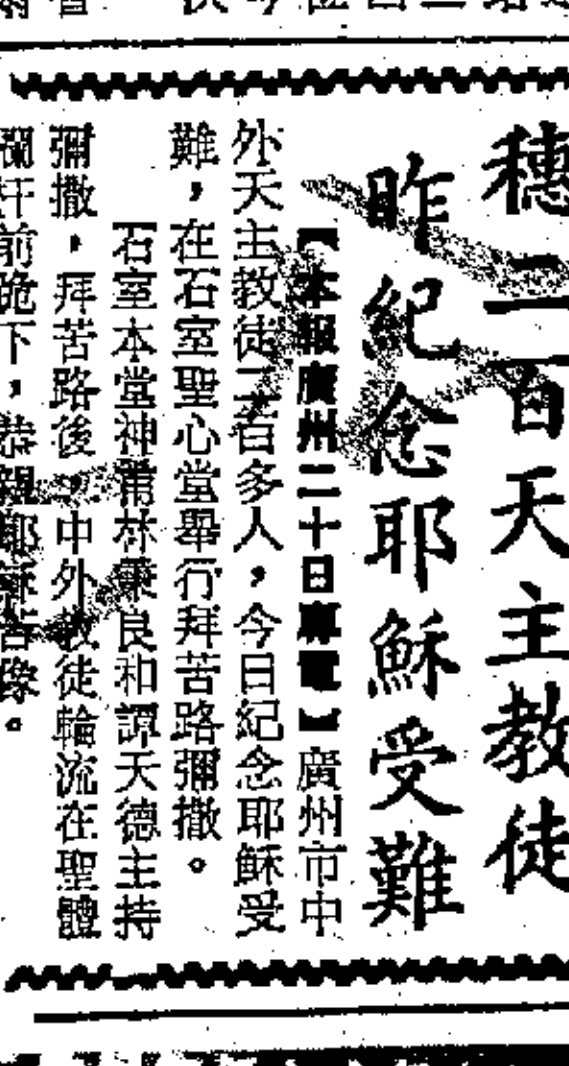 穗二百天主教徒
昨紀念耶穌受難
【本報廣州二十日專電】廣州市中
外天主教徒二百多人，今日紀念耶穌受
難，在石室聖心堂舉行拜苦路彌撒。
石室本堂神甫林秉良和譚天德主持
彌撒，拜苦路後，中外教徒輪流在聖體
欄杆前跪下，恭親耶穌苦像。